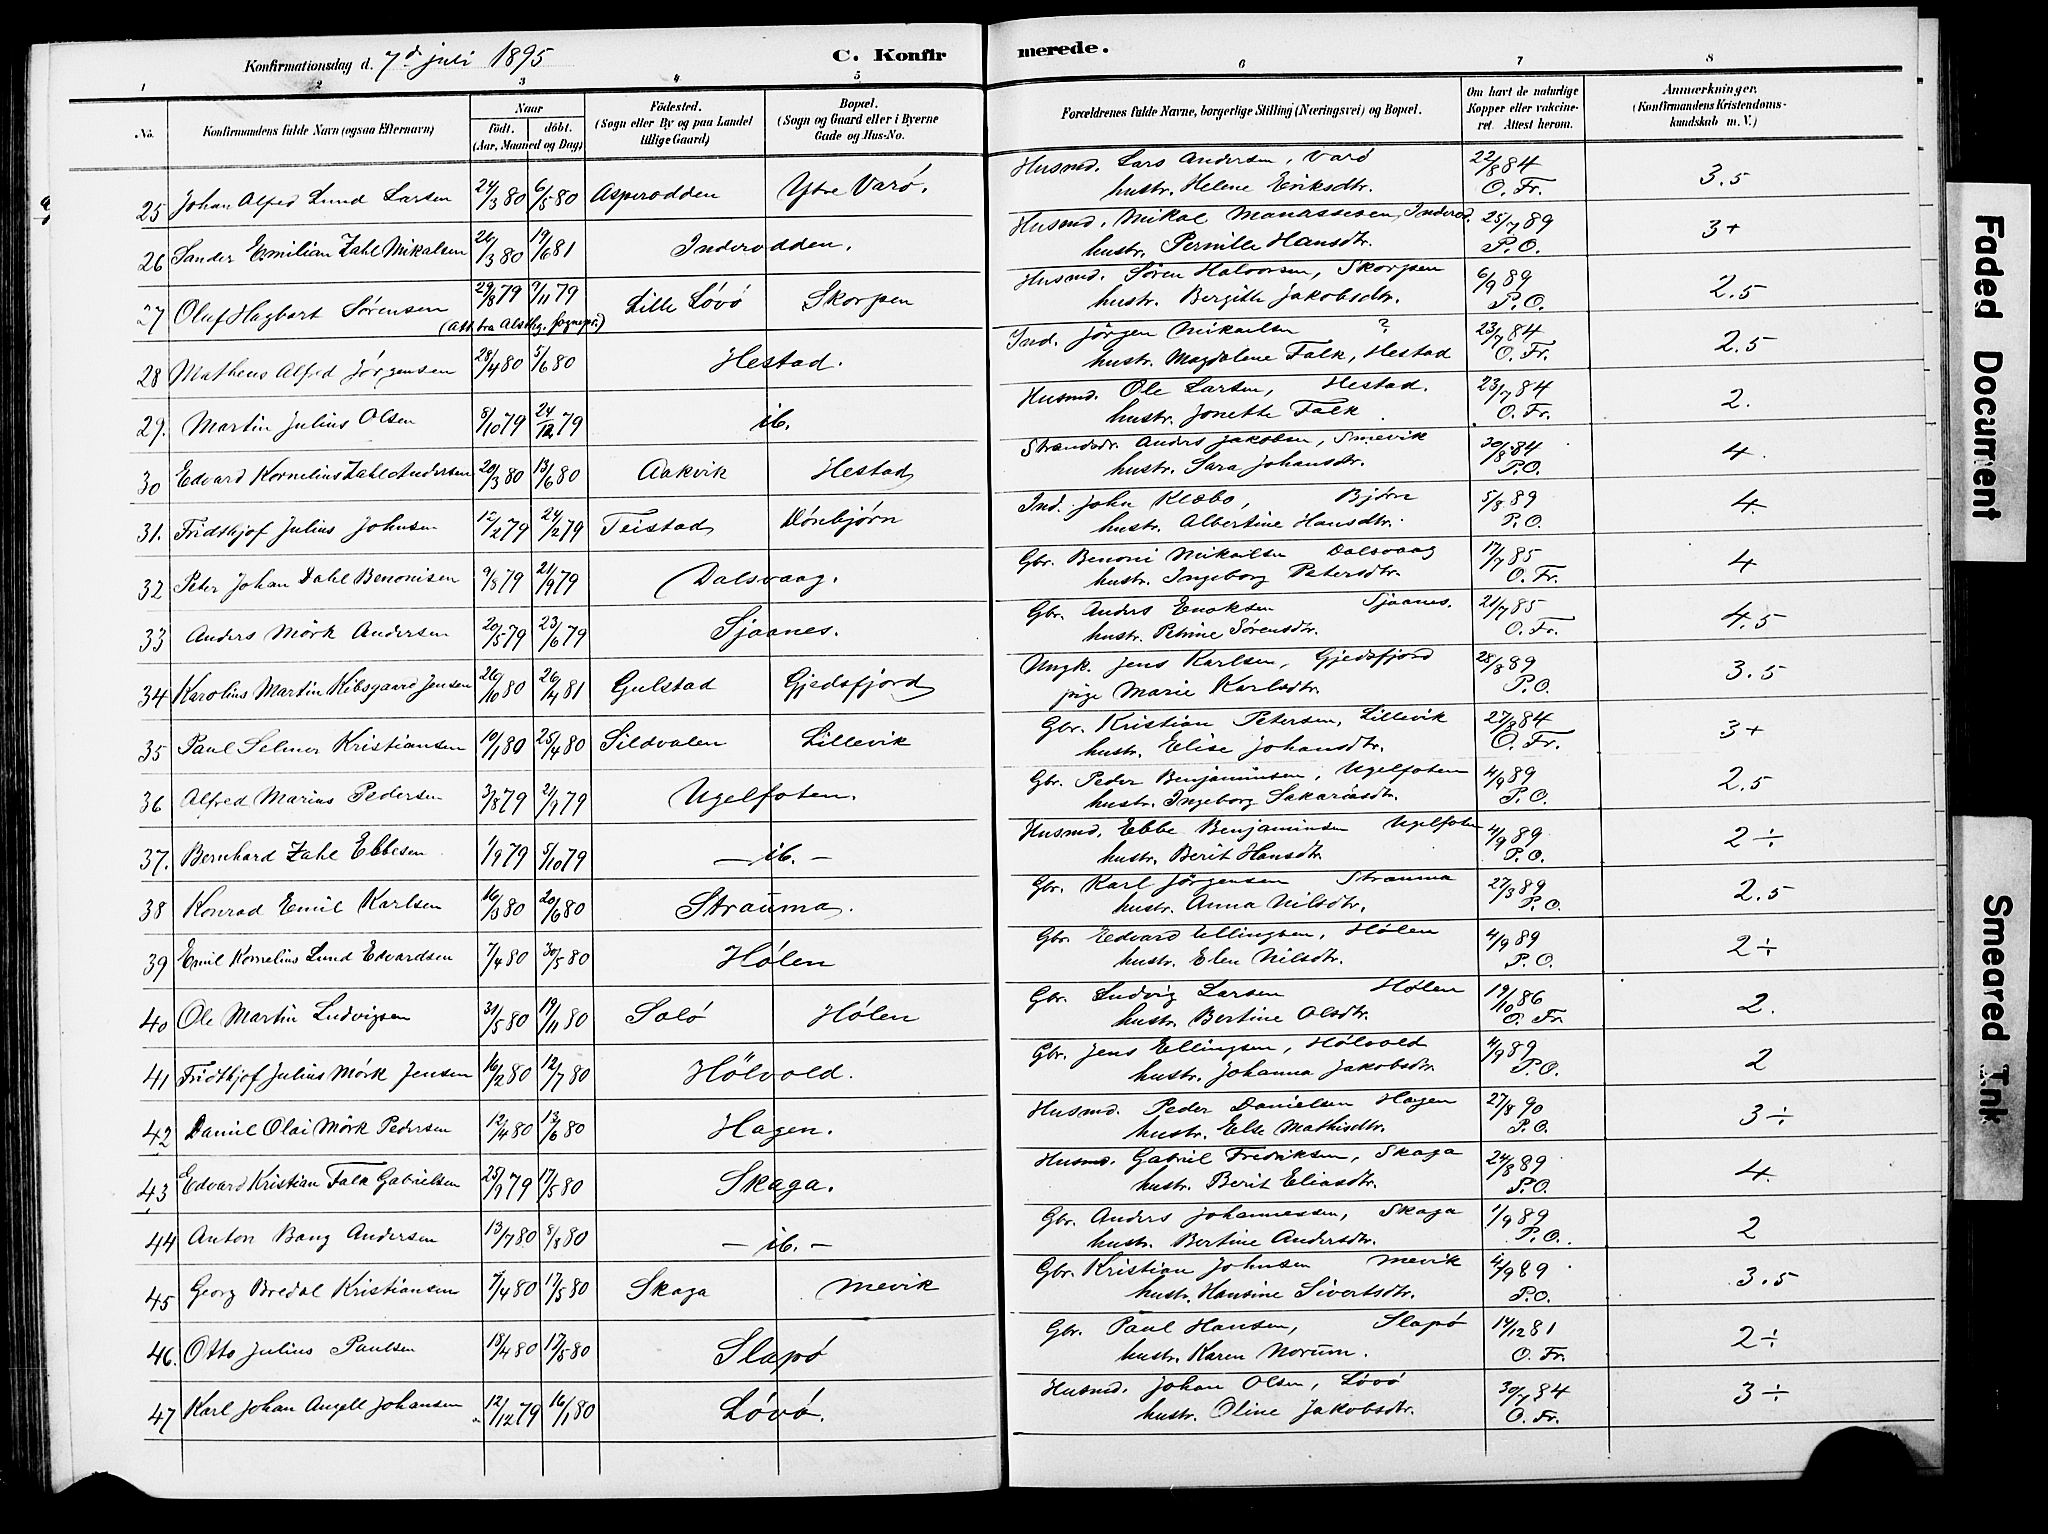 Konfirmationsdag d. 7d juli 1895
C. Konfir merede.
1 2 3 4 5 6 7 8
No. Konfirmandens fulde Navn (ogsaa Efternavn) Naar født. døbt. (Aar, Maaned og Dag) Fødested. (Sogn eller By og paa Landet tillige Gaard) Bopæl. (Sogn og Gaard eller i Byerne Gade og Hus-No. Forældrenes fulde Navne, borgerlige Stilling (Næringsvei) og Bopæl. Om havt de naturlige Kopper eller vakcineret. Attest herom. Anmærkninger, (Konfirmandens Kristendomskundskab m. V.)
25 Johan Alfred Lund Larsen 24/3 80 6/5 80 Asperodden Ytre Varø. Husmd. Lars Andersen, Varø 22/8 84 3.5
hustr. Helene Eriksdtr. O. Fr.
26 Sander Emilian Zahl Mikalsen 26/3 80 19/6 81 Inderodden. Husmd. Mikal Manassesen, Inderod. 25/7 89 3+
hustr. Pernille Hansdtr. P.O.
27 Oluf Hagbart Sørensen 29/8 79 9/11 79 Lille Løvø Skorpen Husmd. Søren Halvorsen, Skorpen 6/9 89 2.5
(Att. fra Alsthg. sognepr.) hustr. Bergitte Jakobsdtr. P.O.
28 Matheus Alfred Jørgensen 28/4 80 5/6 80 Hestad. Ind. Jørgen Mikalsen ? 23/7 84 2.5
hustr. Magdalene Falk, Hestad O. Fr.
29. Martin Julius Olsen 8/10 79 24/12 79 ib. Husmd. Ole Larsen, Hestad. 23/7 84 2.
hustr. Jonette Falk O. Fr.
30 Edvard Kornelius Zahl Andersen 20/3 80 13/6 80 Aakvik Hestad Strandsdr. Anders Jakobsen, Smevik 30/8 84 4.
hustr. Sara Johansdtr. P.O.
31. Fridthjof Julius Johnsen 12/2 79 24/2 79 Teistad Dønbjørn Ind. John Klæbo, Bjørn 5/8 89 4.
hustr. Albertine Hansdtr. P.O.
32 Peter Johan Dahl Benonisen 9/8 79 21/9 79 Dalsvaag. Gbr. Benoni Mikalsen Dalsvaag 17/7 85 4
hustr. Ingeborg Petersdtr. O. Fr.
33 Anders Mørk Andersen 20/5 79 23/6 79 Sjaanes. Gbr. Anders Enoksen Sjaanes. 21/7 85 4.5
hustr. Petrine Sørensdtr. O. Fr.
34 Karolius Martin Kibsgaard Jensen 26/10 80 26/4 81 Gulstad Gjedsfjord Ungk. Jens Karlsen, Gjedsfjord 28/8 89 3.5
pige Marie Karlsdtr. P.O.
35 Paul Selmer Kristiansen 10/1 80 25/4 80 Sildvalen Lillevik Gbr. Kristian Petersen, Lillevik 27/8 84 3+
hustr. Elise Johansdtr. O. Fr.
36 Alfred Marius Pedersen 3/8 79 21/9 79 Ugelfoten. Gbr. Peder Benjaminsen, Ugelfoten 4/9 89 2.5
hustr. Ingeborg Sakariasdtr. P.O.
37. Bernhard Zahl Ebbesen 1/9 79 5/10 79 — ib. — Husmd. Ebbe Benjaminsen Ugelfoten 4/9 89 2÷
hustr. Berit Hansdtr. P.O.
38 Konrad Emil Karlsen 16/3 80 20/6 80 Strauma. Gbr. Karl Jörgensen Strauma 27/3 89 2.5
hustr. Anna Nilsdtr. P.O.
39 Emil Kornelius Lund Edvardsen 7/4 80 30/5 80 Hølen Gbr. Eedvard Ellingsen, Hølen 4/9 89 2÷
hustr. Elen Nilsdtr. P.O.
40 Ole Martin Ludvigsen 31/5 80 19/11 80 Solø Hølen Gbr. Ludvig Larsen Hølen 19/10 86 2.
hustr. Bertine Olsdtr. O. Fr.
41 Fridthjof Julius Mørk Jensen 16/2 80 12/7 80 Hölvold. Gbr. Jens Ellingsen, Hølvold 4/9 89 2
hustr. Johanna Jakobsdtr. P.O.
42 Daniel Olai Mørk Pedersen 12/4 80 13/6 80 Hagen. Husmd. Peder Danielsen Hagen 27/8 90 3÷
hustr. Else Mathisdtr. P.O.
43 Edvard Kristian Falk Gabrielsen 25/9 79 17/5 80 Skaga. Husmd. Gabriel Fredriksen, Skaga 24/8 89 4.
hustr. Berit Eliasdtr. P.O.
44 Anton Bang Andersen 13/7 80 8/8 80 — ib. — Gbr. Anders Johannessen, Skaga 1/9 89 2
hustr. Bertine Andersdtr. P.O.
45 Georg Bredal Kristiansen 4/4 80 17/5 80 Skaga Mevik Gbr. Kristian Johnsen Mevik 4/9 89 3.5
hustr. Hansine Sivertsdtr. P.O.
46. Otto Julius Paulsen 18/4 80 17/5 80 Slapø Gbr. Paul Hansen, Slapø 14/12 81 2÷
hustr. Karen Norum. O. Fr.
47 Karl Johan Angell Johansen 12/12 79 16/1 80 Løvø. Husmd. Johan Olsen, Løvø 30/7 84 3÷
hustr. Oline Jakobsdtr. O. Fr.
Faded Document
Smeared Ink